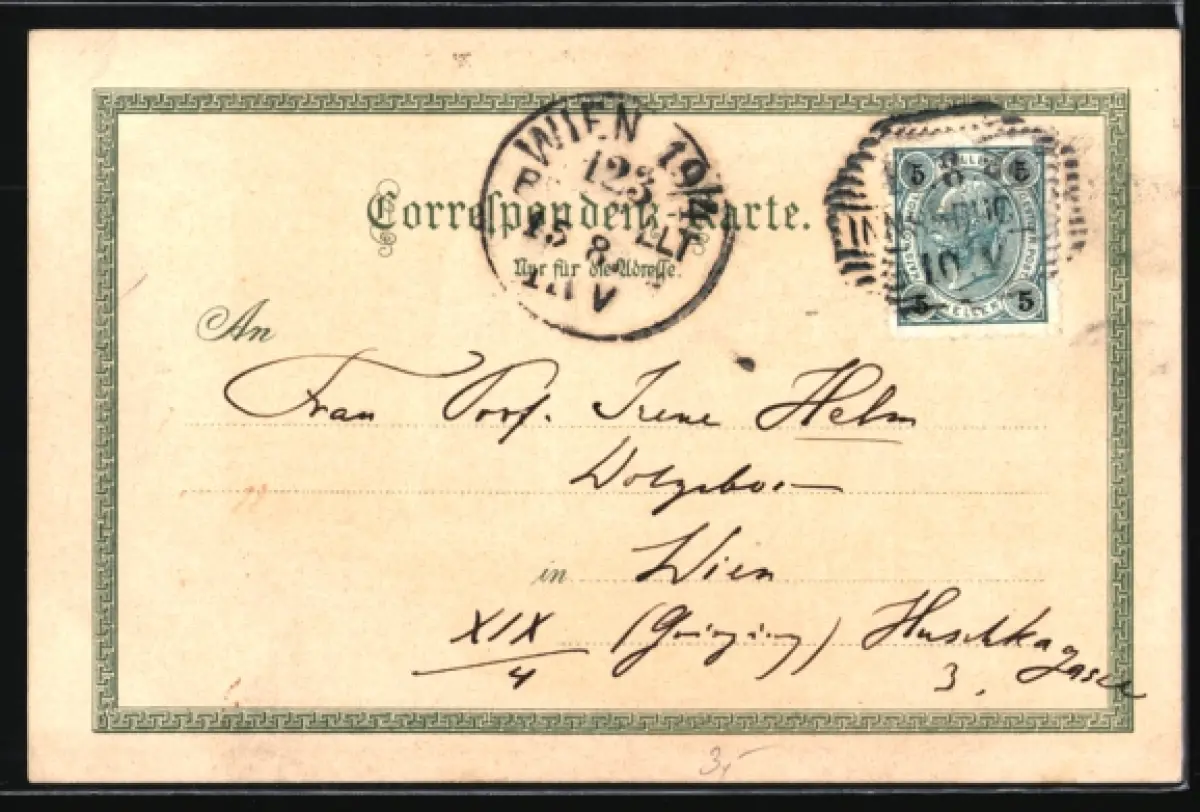 WIEN 19/4
123
15 8
BESTELLT
III V
5 5
10 V
5 HELLER 5
Correspondenz-Karte.
Nur für die Adresse.
An
Frau Prof. Irene Helm
Wolgebor
in Wien
XIX/4 (Grinzing) Huschkagasse
3.
3,-